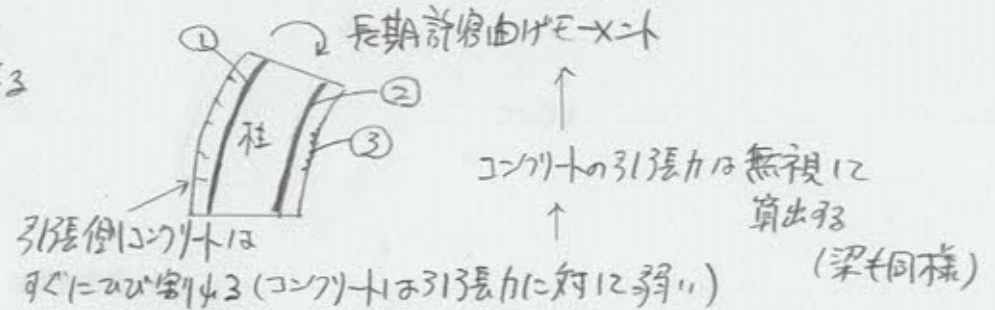 ① 長期許容曲げモーメント
る
②
柱
③
コンクリートの引張力は無視して
算出する
(梁も同様)
引張側コンクリートは
すぐにひび割れる(コンクリートは引張力に対して弱い)